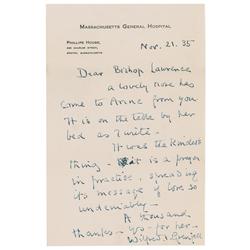 MASSACHUSETTS GENERAL HOSPITAL
PHILLIPS HOUSE,
BOSTON, MASSACHUSETTS
Nov. 21. 35
Dear Bishop Lawrence
a lovely rose has
come to Anne from you
It is on the table by her
bed as I write.
It was the kindest
thing - it is a prayer
in practise, spreading
its message of love so
undeniably -
A thousand
thanks - yrs - for her.
Wilfred Grenfell